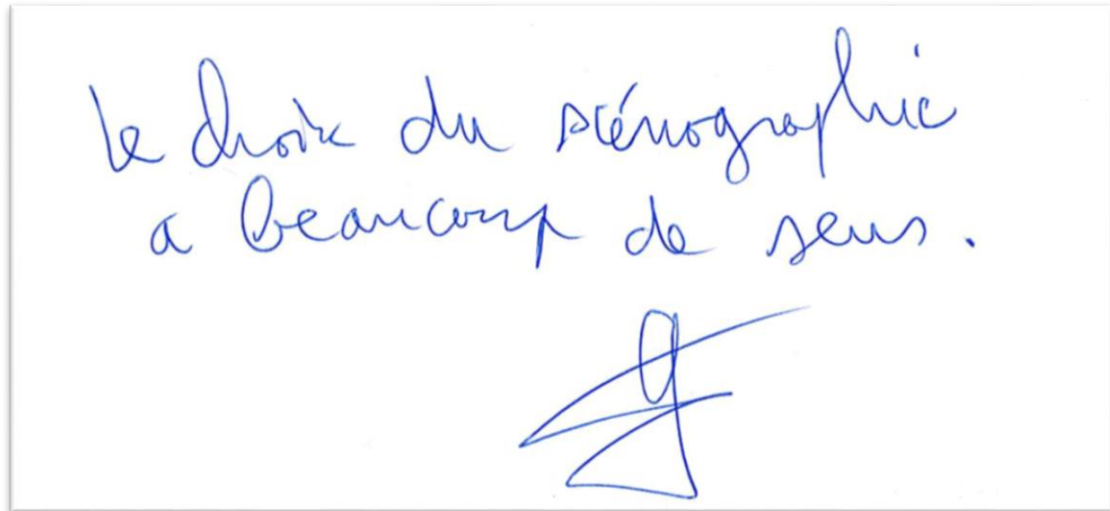 Le choix du scénographie
a beaucoup de sens.